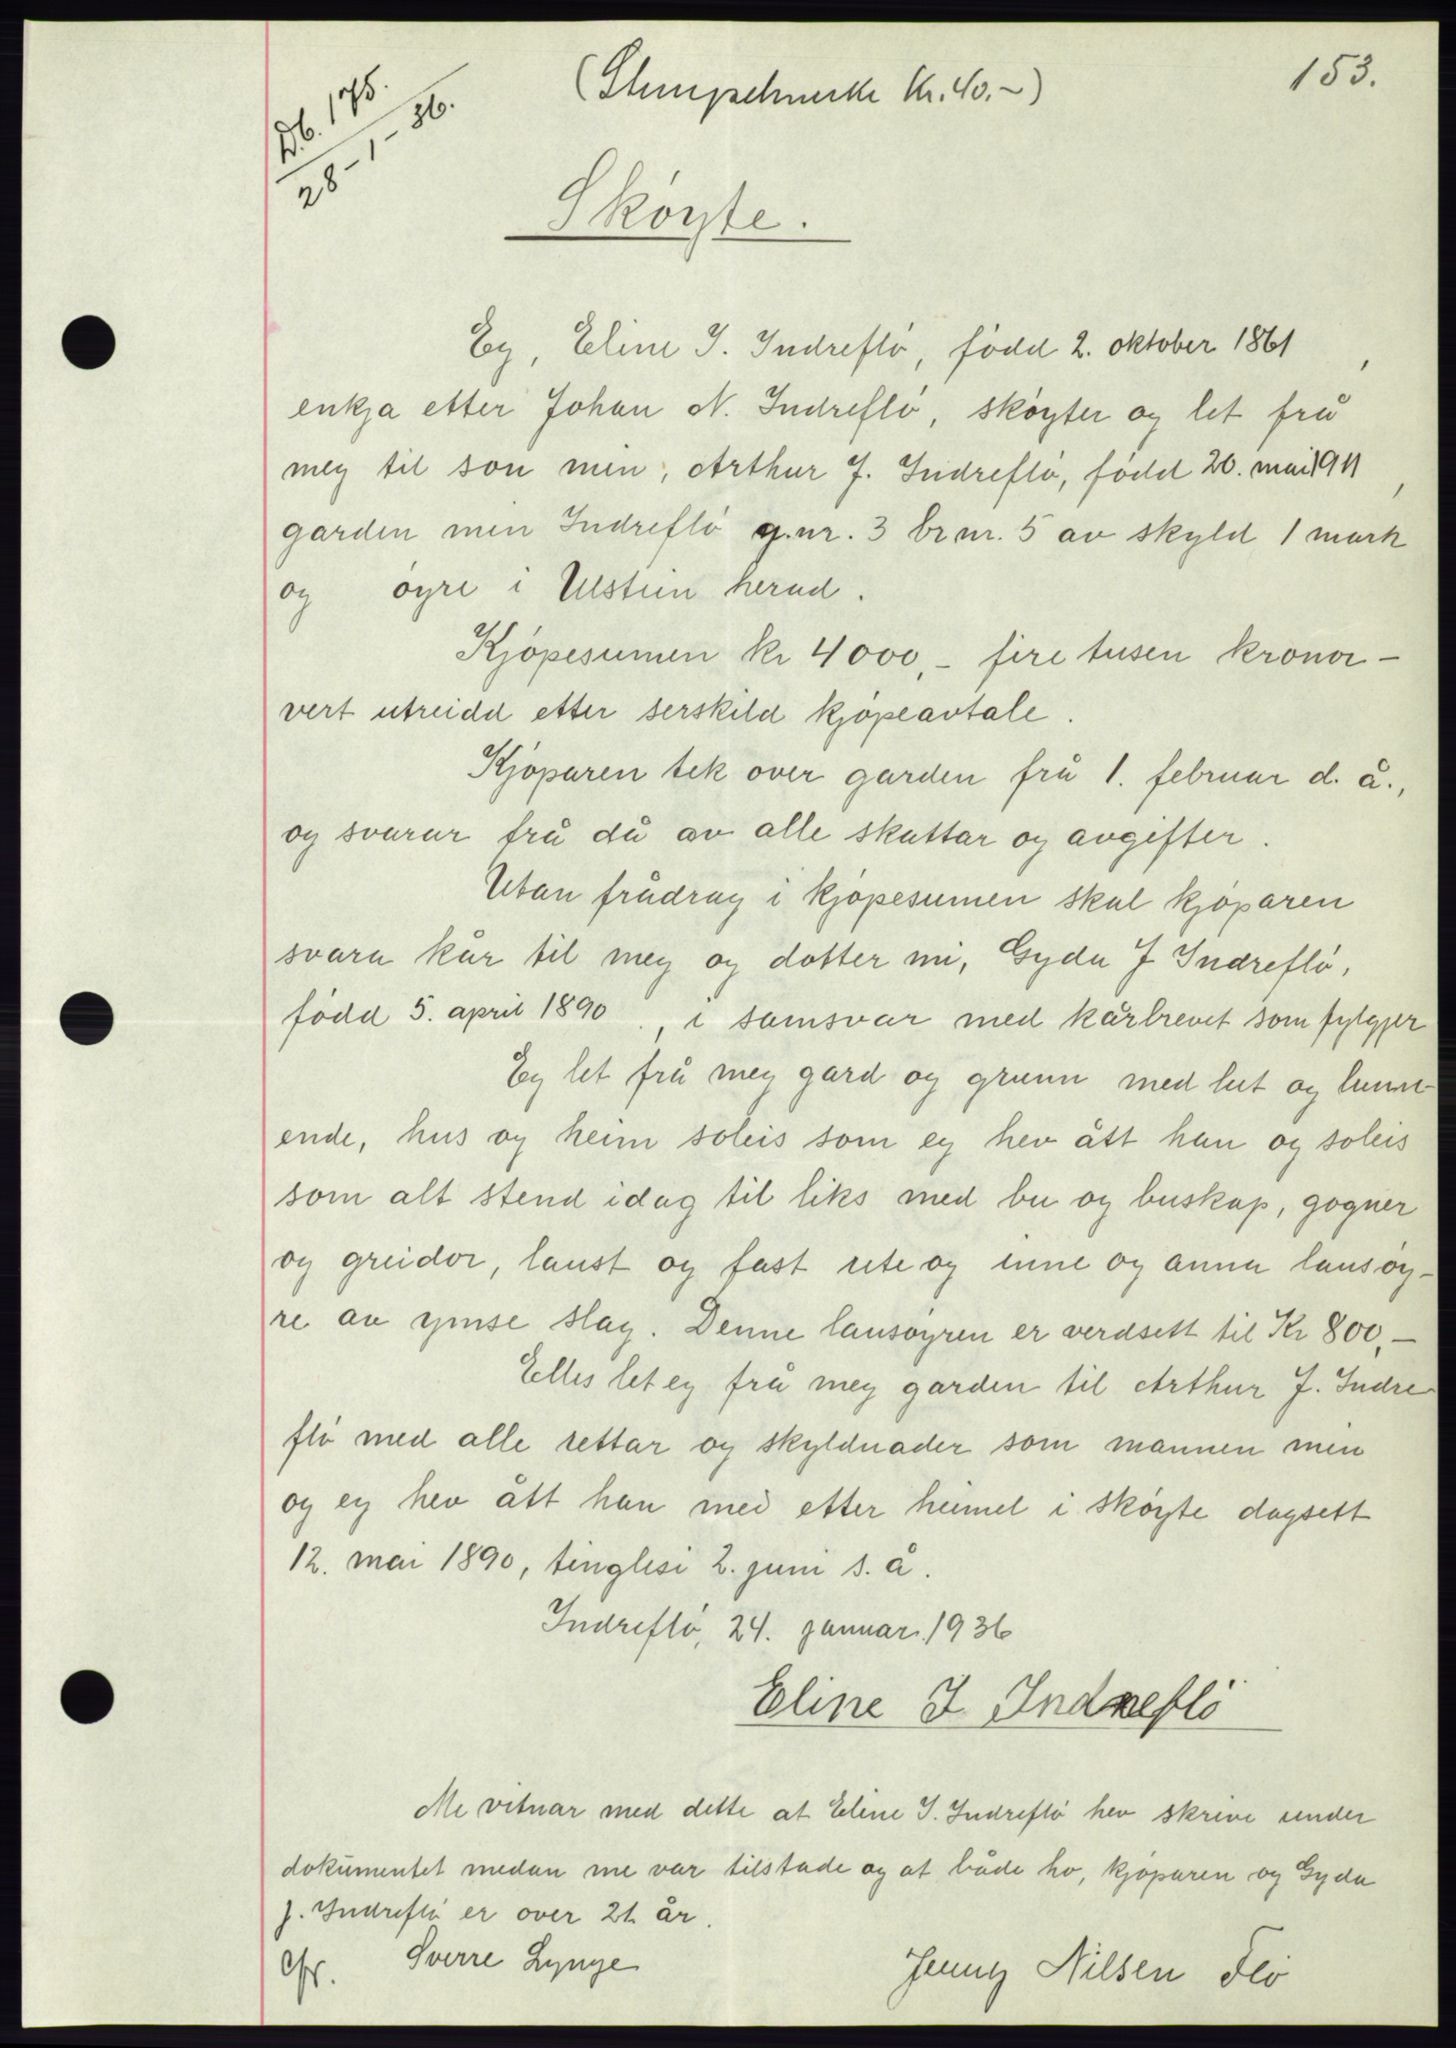 153.
(Stempelmerke Kr. 40.-)
Db. 175.
28-1-36.
Skøyte.
Eg, Eline I. Indreflø, født 2. oktober 1861,
enkja etter Johan N. Indreflø, skøyter og let frå
meg til son min, Arthur J. Indreflø, født 20. mai 1911,
garden min Indreflø g.nr. 3 br.nr. 5 av skyld 1 mark
og øyre i Ulstein herad.
Kjøpesumen kr 4000,- fire tusen kronor -
vert utreidd etter serskild kjøpeavtale.
Kjøparen tek over garden frå 1. februar d. å.,
og svarar frå då av alle skattar og avgifter.
Utan frådrag i kjøpesumen skal kjøparen
svara kår til meg og dotter mi, Gyda J Indreflø,
født 5. april 1890, i samsvar med kårbrevet som fylgjer
Eg let frå meg gard og grunn med lut og lunn-
ende, hus og heim soleis som eg hev ått han og soleis
som alt stend idag til liks med bu og buskap, gogner
og greidor, laust og fast ute og inne og anna lausøy-
re av ymse slag. Denne lausøyren er verdsett til Kr 800,-
Elles let eg frå meg garden til Arthur J. Indre
flø med alle rettar og skyldnader som mannen min
og eg hev ått han med etter heimel i skøyte dagsett
12. mai 1890, tinglesi 2. juni s. å.
Indreflø, 24. januar 1936
Eline I Indreflö
Me vitnar med dette at Eline I. Indreflø hev skrive under
dokumentet medan me var tilstade og at både ho, kjøparen og Gyda
J. Indreflø er over 21 år.
Sverre Lynge
Jenny Nilsen Flø